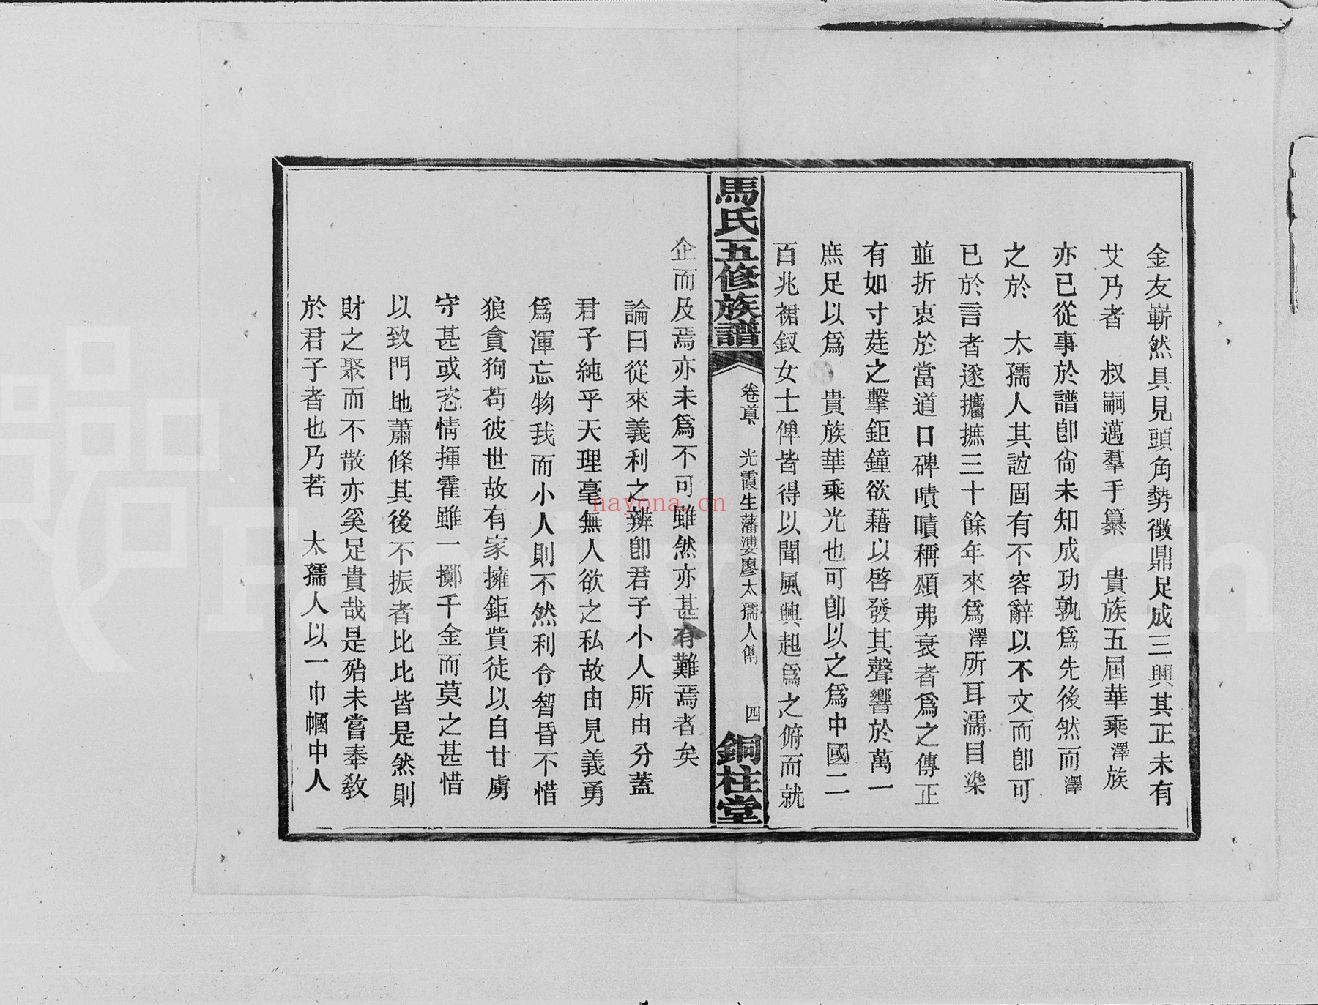 金友嶄然具見頭角勢徵鼎足成三興其正未有
艾乃者 叔嗣邁羣手纂 貴族五屆華乘澤族
亦已從事於譜卽尙未知成功孰爲先後然而澤
之於 太孺人其誼固有不容辭以不文而卽可
已於言者遂攟摭三十餘年來爲澤所耳濡目染
並折衷於當道口碑嘖嘖稱頌弗衰者爲之傳正
有如寸莛之擊鉅鐘欲藉以啓發其聲響於萬一
庶足以爲 貴族華乘光也可卽以之爲中國二
百兆裙釵女士俾皆得以聞風興起爲之俯而就
馬氏五修族譜
卷 光霞生藩 廖太孺人傳
四
銅柱堂
企而及焉亦未爲不可雖然亦甚有難焉者矣
論曰從來義利之辨卽君子小人所由分蓋
君子純乎天理毫無人欲之私故由見義勇
爲渾忘物我而小人則不然利令智昏不惜
狼貪狗苟彼世故有家擁鉅貲徒以自甘虜
守甚或恣情揮霍雖一擲千金而莫之甚惜
以致門地蕭條其後不振者比比皆是然則
財之聚而不散亦奚足貴哉是殆未嘗奉敎
於君子者也乃若 太孺人以一巾幗中人
nayona.cn
FamilySearch